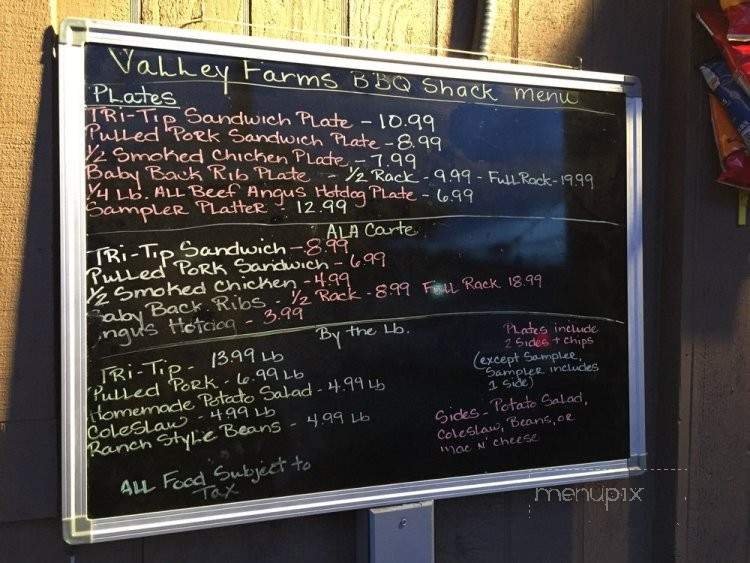 Valley Farms BBQ Shack menu
Plates
TRi-Tip Sandwich Plate - 10.99
Pulled Pork Sandwich Plate - 8.99
1/2 Smoked Chicken Plate - 7.99
Baby Back Rib Plate - 1/2 Rack - 9.99 - Full Rack - 19.99
1/4 Lb. ALL Beef Angus Hotdog Plate - 6.99
Sampler Platter - 12.99
ALA Carte
TRi-Tip Sandwich - 8.99
Pulled Pork Sandwich - 6.99
1/2 Smoked Chicken - 4.99
Baby Back Ribs - 1/2 Rack - 8.99 Full Rack 18.99
Angus Hotdog - 3.99
By the Lb.
TRi-Tip - 13.99 Lb
Pulled Pork - 6.99 Lb
Homemade Potato Salad - 4.99 Lb
Coleslaw - 4.99 Lb
Ranch Style Beans - 4.99 Lb
Plates include
2 Sides + chips
(except Sampler,
Sampler includes
1 side)
Sides - Potato Salad,
Coleslaw, Beans, or
Mac N' cheese
ALL Food Subject to
Tax
menupix